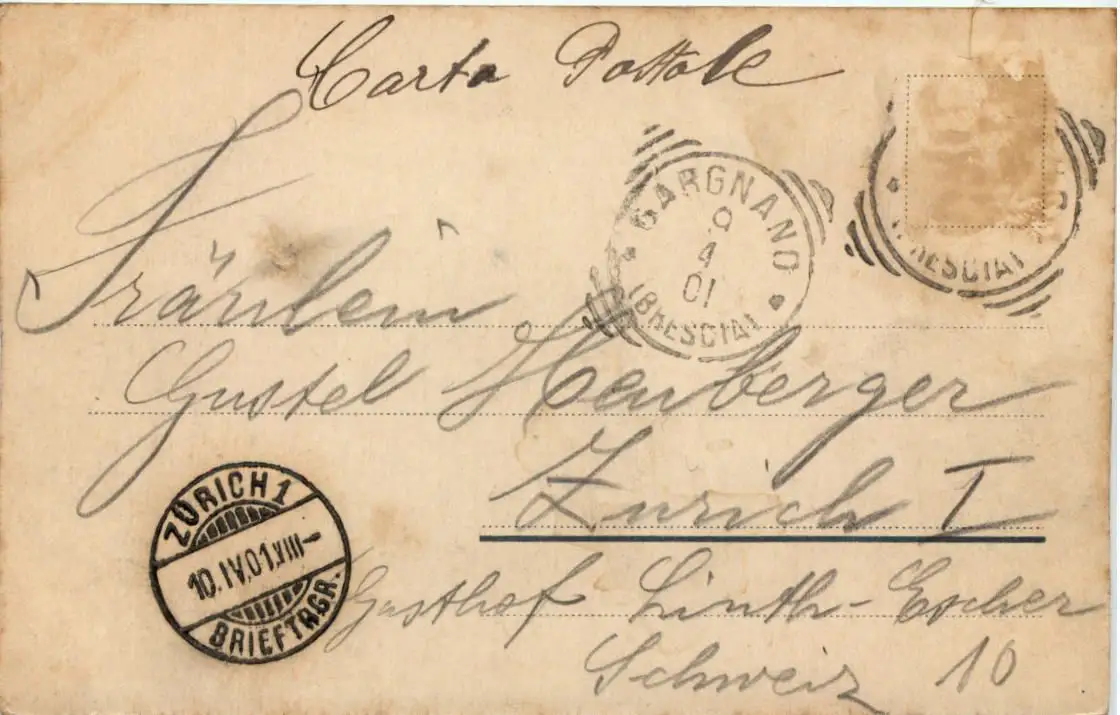 Carta Postale
GARGNANO
9
4
01
(BRESCIA)
Fräulein
Gustel Henberger
Zurich I
ZÜRICH 1
10.IV.01.VIII-
BRIEFTRGR.
Gasthof Linth-Escher
Schweiz 10